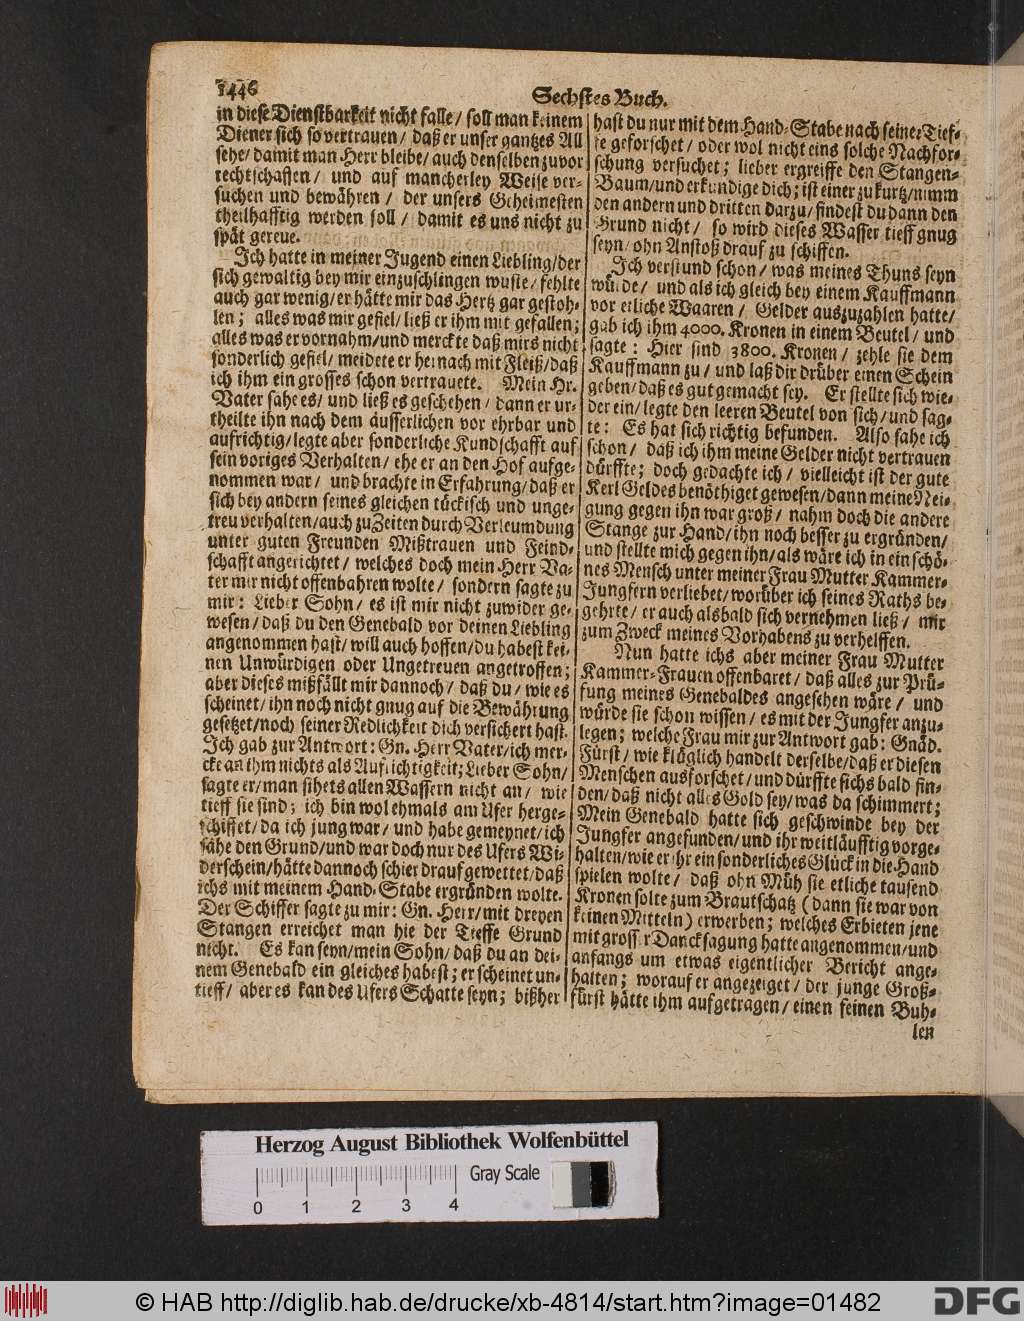 1446
Sechstes Buch.
in diese Dienstbarkeit nicht falle / soll man keinem
Diener sich so vertrauen / daß er unser gantzes All
sehe / damit man Herr bleibe / auch denselben zuvor
rechtschaffen / und auf mancherley Weise ver-
suchen und bewähren / der unsers Geheimesten
theilhafftig werden soll / damit es uns nicht zu
spät gereue.
Ich hatte in meiner Jugend einen Liebling / der
sich gewaltig bey mir einzuschlingen wuste / fehlte
auch gar wenig / er hätte mir das Hertz gar gestoh-
len; alles was mir gefiel / ließ er ihm mit gefallen;
alles was er vornahm / und merckte daß mirs nicht
sonderlich gefiel / meidete er hernach mit Fleiß / daß
ich ihm ein grosses schon vertrauete. Mein Hr.
Vater sahe es / und ließ es geschehen / dann er ur-
theilte ihn nach dem äusserlichen vor ehrbar und
aufrichtig / legte aber sonderliche Kundschafft auf
sein voriges Verhalten / ehe er an den Hof aufge-
nommen war / und brachte in Erfahrung / daß er
sich bey andern seines gleichen tückisch und unge-
treu verhalten / auch zu Zeiten durch Verleumdung
unter guten Freunden Mißtrauen und Feind-
schafft angerichtet / welches doch mein Herr Va-
ter mir nicht offenbahren wolte / sondern sagte zu
mir: Lieber Sohn / es ist mir nicht zuwider ge-
wesen / daß du den Genebald vor deinen Liebling
angenommen hast / will auch hoffen / du habest kei-
nen Unwürdigen oder Ungetreuen angetroffen;
aber dieses mißfällt mir dannoch / daß du / wie es
scheinet / ihn noch nicht gnug auf die Bewährung
gesetzet / noch seiner Redlichkeit dich versichert hast.
Ich gab zur Antwort: Gn. Herr Vater / ich mer-
cke an ihm nichts als Aufrichtigkeit; Lieber Sohn /
sagte er / man sihets allen Wassern nicht an / wie
tieff sie sind; ich bin wol ehmals am Ufer herge-
schiffet / da ich jung war / und habe gemeynet / ich
sähe den Grund / und war doch nur des Ufers Wi-
derschein / hätte dannoch schier drauf gewettet / daß
ichs mit meinem Hand-Stabe ergründen wolte.
Der Schiffer sagte zu mir: Gn. Herr / mit dreyen
Stangen erreichet man hie der Tieffe Grund
nicht. Es kan seyn / mein Sohn / daß du an dei-
nem Genebald ein gleiches habest; er scheinet un-
tieff / aber es kan des Ufers Schatte seyn; bißher
hast du nur mit dem Hand-Stabe nach seiner Tief-
fe geforschet / oder wol nicht eins solche Nachfor-
schung versuchet; lieber ergreiffe den Stangen-
Baum / und erkundige dich; ist einer zu kurtz / nimm
den andern und dritten darzu / findest du dann den
Grund nicht / so wird dieses Wasser tieff gnug
seyn / ohn Anstoß drauf zu schiffen.
Ich verstund schon / was meines Thuns seyn
würde / und als ich gleich bey einem Kauffmann
vor etliche Waaren / Gelder auszuzahlen hatte /
gab ich ihm 4000. Kronen in einem Beutel / und
sagte: Hier sind 3800. Kronen / zehle sie dem
Kauffmann zu / und laß dir drüber einen Schein
geben / daß es gut gemacht sey. Er stellte sich wie-
der ein / legte den leeren Beutel von sich / und sag-
te: Es hat sich richtig befunden. Also sahe ich
schon / daß ich ihm meine Gelder nicht vertrauen
dürffte; doch gedachte ich / vielleicht ist der gute
Kerl Geldes benöthiget gewesen / dann meine Nei-
gung gegen ihn war groß / nahm doch die andere
Stange zur Hand / ihn noch besser zu ergründen /
und stellte mich gegen ihn / als wäre ich in ein schö-
nes Mensch unter meiner Frau Mutter Kammer-
Jungfern verliebet / worüber ich seines Raths be-
gehrte / er auch alsbald sich vernehmen ließ / mir
zum Zweck meines Vorhabens zu verhelffen.
Nun hatte ichs aber meiner Frau Mutter
Kammer-Frauen offenbaret / daß alles zur Prü-
fung meines Genebaldes angesehen wäre / und
würde sie schon wissen / es mit der Jungfer anzu-
legen; welche Frau mir zur Antwort gab: Gnäd.
Fürst / wie kläglich handelt derselbe / daß er diesen
Menschen ausforschet / und dürffte sichs bald fin-
den / daß nicht alles Gold sey / was da schimmert;
Mein Genebald hatte sich geschwinde bey der
Jungfer angefunden / und ihr weitläufftig vorge-
halten / wie er ihr ein sonderliches Glück in die Hand
spielen wolte / daß ohn Müh sie etliche tausend
Kronen solte zum Brautschatz (dann sie war von
keinen Mitteln) erwerben; welches Erbieten jene
mit grosser Dancksagung hatte angenommen / und
anfangs um etwas eigentlicher Bericht ange-
halten; worauf er angezeiget / der junge Groß-
fürst hätte ihm aufgetragen / einen feinen Buh-
len
Herzog August Bibliothek Wolfenbüttel
Gray Scale
0 1 2 3 4
© HAB http://diglib.hab.de/drucke/xb-4814/start.htm?image=01482
DFG